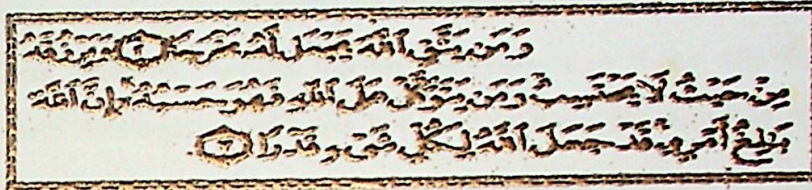 وَمَن يَتَّقِ ٱللَّهَ يَجْعَل لَّهُۥ مَخْرَجًا ۝٢ وَيَرْزُقْهُ
مِنْ حَيْثُ لَا يَحْتَسِبُ ۚ وَمَن يَتَوَكَّلْ عَلَى ٱللَّهِ فَهُوَ حَسْبُهُۥٓ ۚ إِنَّ ٱللَّهَ
بَٰلِغُ أَمْرِهِۦ ۚ قَدْ جَعَلَ ٱللَّهُ لِكُلِّ شَىْءٍ قَدْرًا ۝٣